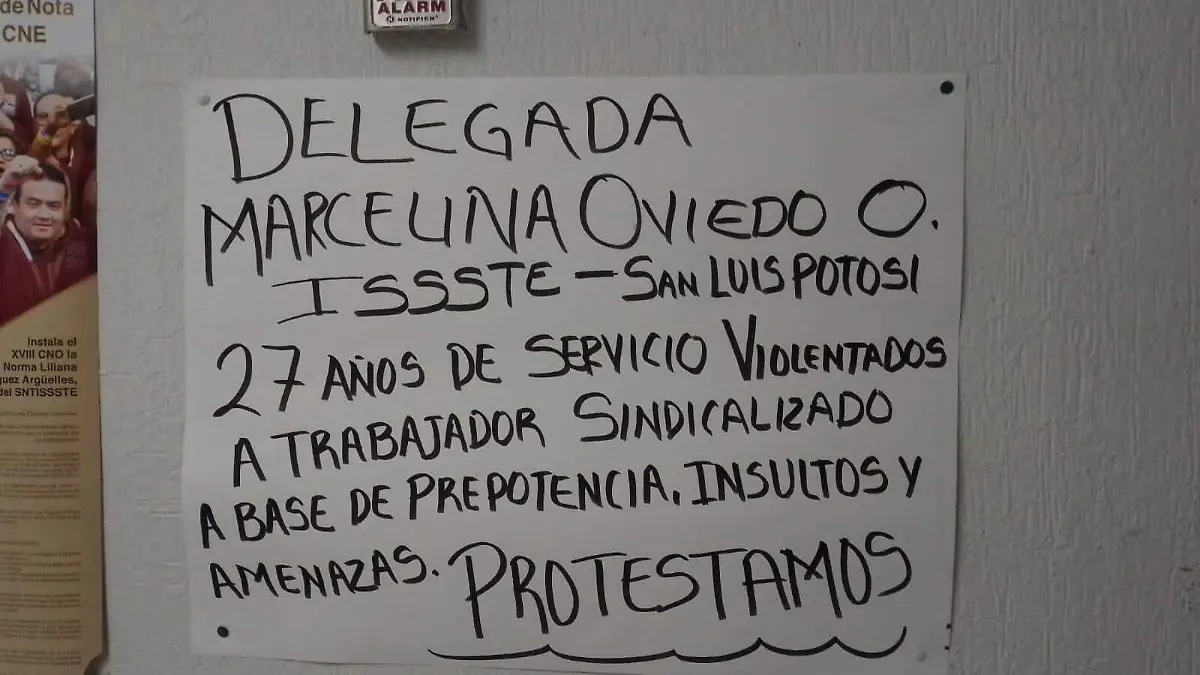 de Nota
CNE
Instala el
XVIII CNO la
Norma Liliana
guez Argüelles,
del SNTISSSTE
ALARM
NOTIFIER
DELEGADA
MARCELINA OVIEDO O.
ISSSTE - SAN LUIS POTOSI
27 AÑOS DE SERVICIO VIOLENTADOS
A TRABAJADOR SINDICALIZADO
A BASE DE PREPOTENCIA. INSULTOS Y
AMENAZAS. PROTESTAMOS